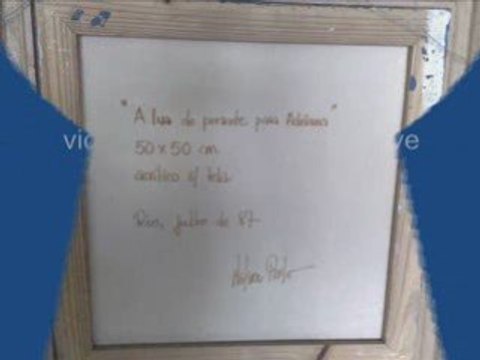 "A lua de presente para Adriana"
50 x 50 cm
acrílico s/ tela
Rio, julho de 87